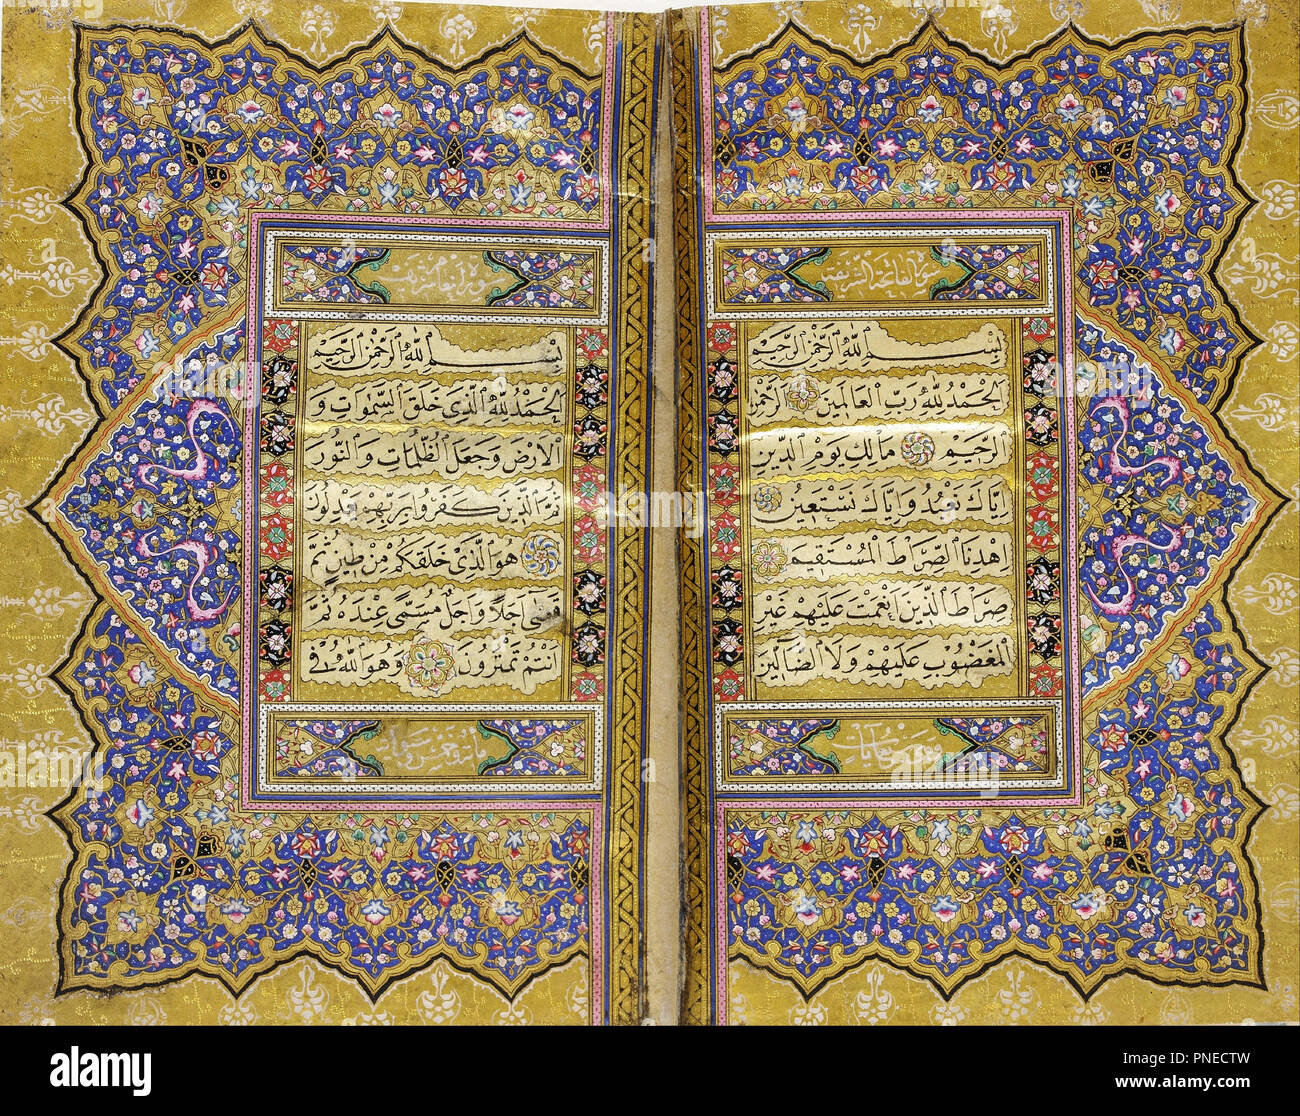 بسم الله الرحمن الرحيم
الحمد لله رب العالمين الرحمن
الرحيم مالك يوم الدين
اياك نعبد واياك نستعين
اهدنا الصراط المستقيم
صراط الذين انعمت عليهم غير
المغضوب عليهم ولا الضالين
بسم الله الرحمن الرحيم
الحمد لله الذي خلق السموات و
الارض وجعل الظلمات والنور
ثم الذين كفروا بربهم يعدلون
هو الذي خلقكم من طين ثم
قضى اجلا واجل مسمى عنده ثم
انتم تمترون وهو الله في
alamy
Image ID: PNECTW
www.alamy.com